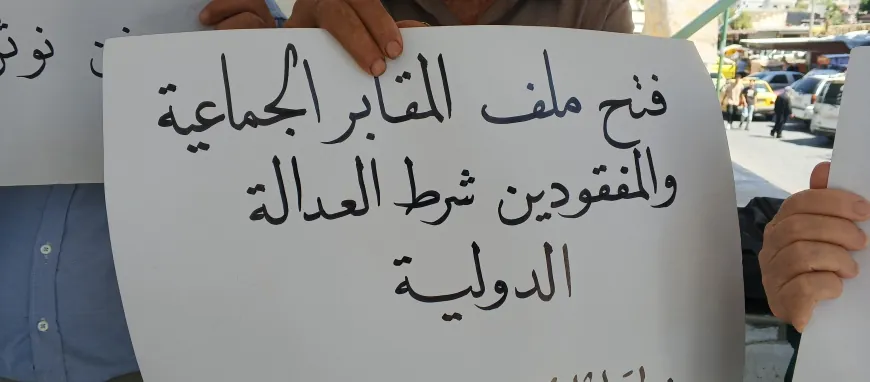 فتح ملف المقابر الجماعية
والمفقودين شرط العدالة
الدولية